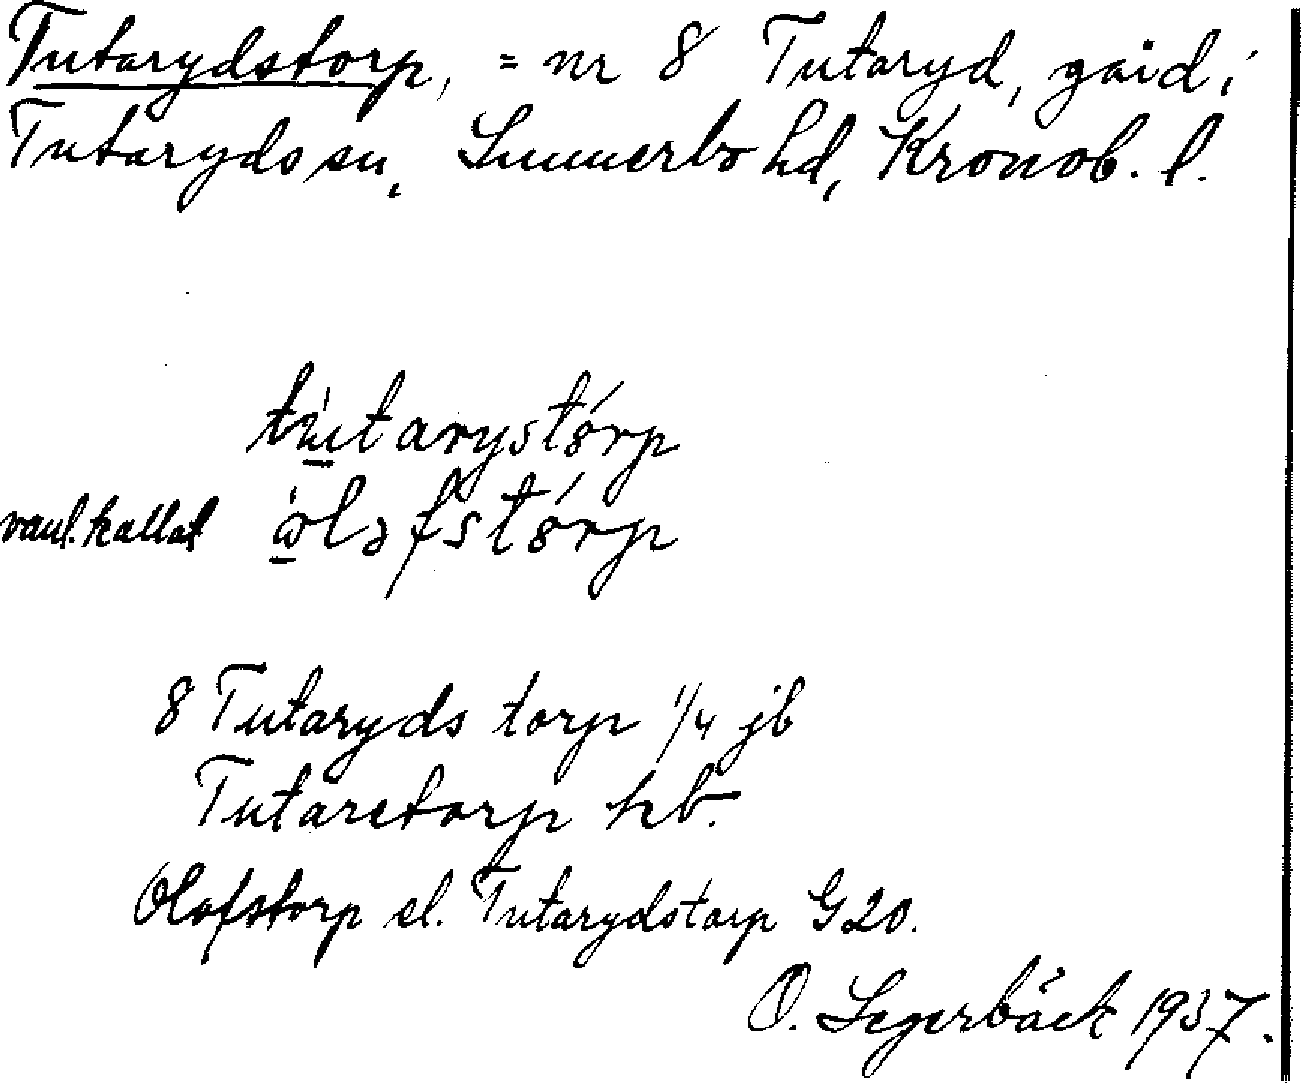 Tutarydstorp, = nr 8 Tutaryd, gård i
Tutaryds sn, Sunnerbo hd, Kronob. l.
tutarystórp
vanl. kallat òləfstórp
8 Tutaryds torp 1/4 jb
Tutaretorp hb.
Olofstorp el. Tutarydstorp G20.
O. Segerbäck 1937.